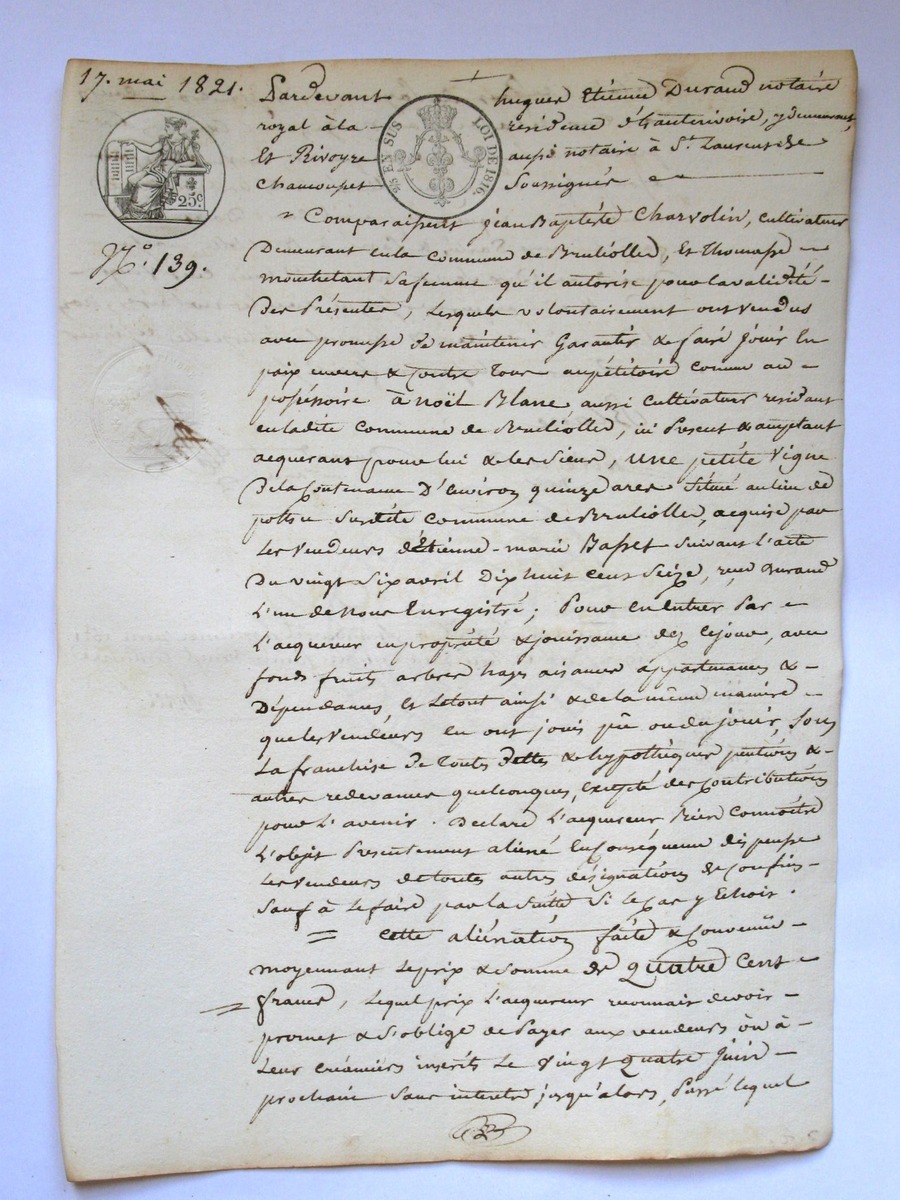 17. mai 1821.
25c
N.º 139.
2/5 EN SUS LOI DE 1816.
Pardevant hugues Etienne Durand notaire
royal à la résidence d'hauterivoire, y demeurant,
Et Rivoyre aussi notaire à St. Laurent de
Chamousset Soussignés
= Comparaissent Jean Baptiste Charvolin, cultivateur
Demeurant en la commune de Brulliolles, Et Thomasse
mouchetant Sa femme qu'il autorise pour la validité
Des Présentes, Lesquels volontairement ont vendus
avec promesse de maintenir Garantir & faire Jouir En
paix envers & Contre Tous au pétitoire comme au
possessoire à noël Blanc aussi cultivateur residant
en ladite Commune de Brulliolles, ici Present & acceptant
acquerant pour lui & les Siens, une petite Vigne
De la Contenance D'environ quinze ares Située au lieu de
Sudite commune de Brulliolles, acquise par
les vendeurs d'Etienne-marie Basset suivant l'acte
Du vingt Six avril Dix huit cent Seize, reçu Durand
L'un de Nous Enregistré; Pour en Entrer Par
L'acquereur en propriété & jouissance dez cejour, avec
fonds fruits arbres hayes aisances appartenances &
Dépendances, Et Letout ainsi & de la même maniere
que les vendeurs en ont joui pû ou du jouir, Sous
La franchise de Toutes Dettes & hypothèques pentions &
autres redevances quelconques, excepté des Contributions
pour L'avenir. Declare L'acquereur Bien Connoître
L'objet Presentement aliené En conséquence dispense
les vendeurs de toutes autres désignations de Confins
Sauf à Le faire par la Suitte Si le cas y Echoit.
= Cette aliénation faite & Convenue
moyennant Le prix & Somme de Quatre Cent
francs, Lequel prix L'acquereur reconnait devoir
promet & S'oblige de Payer aux vendeurs ou à
Leur créanciers inscrits Le Vingt Quatre Juin
prochain Sans interets jusqu'alors, Passé lequel